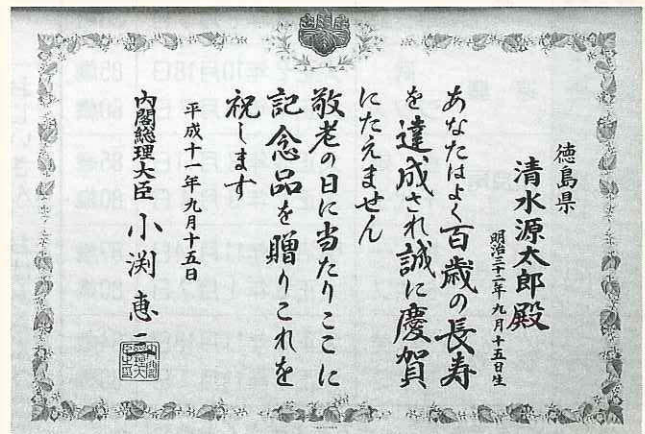 徳島県
清水源太郎殿
明治三十二年九月十五日生
あなたはよく百歳の長寿
を達成され誠に慶賀
にたえません
敬老の日に当たりここに
記念品を贈りこれを
祝します
平成十一年九月十五日
内閣総理大臣 小渕恵三